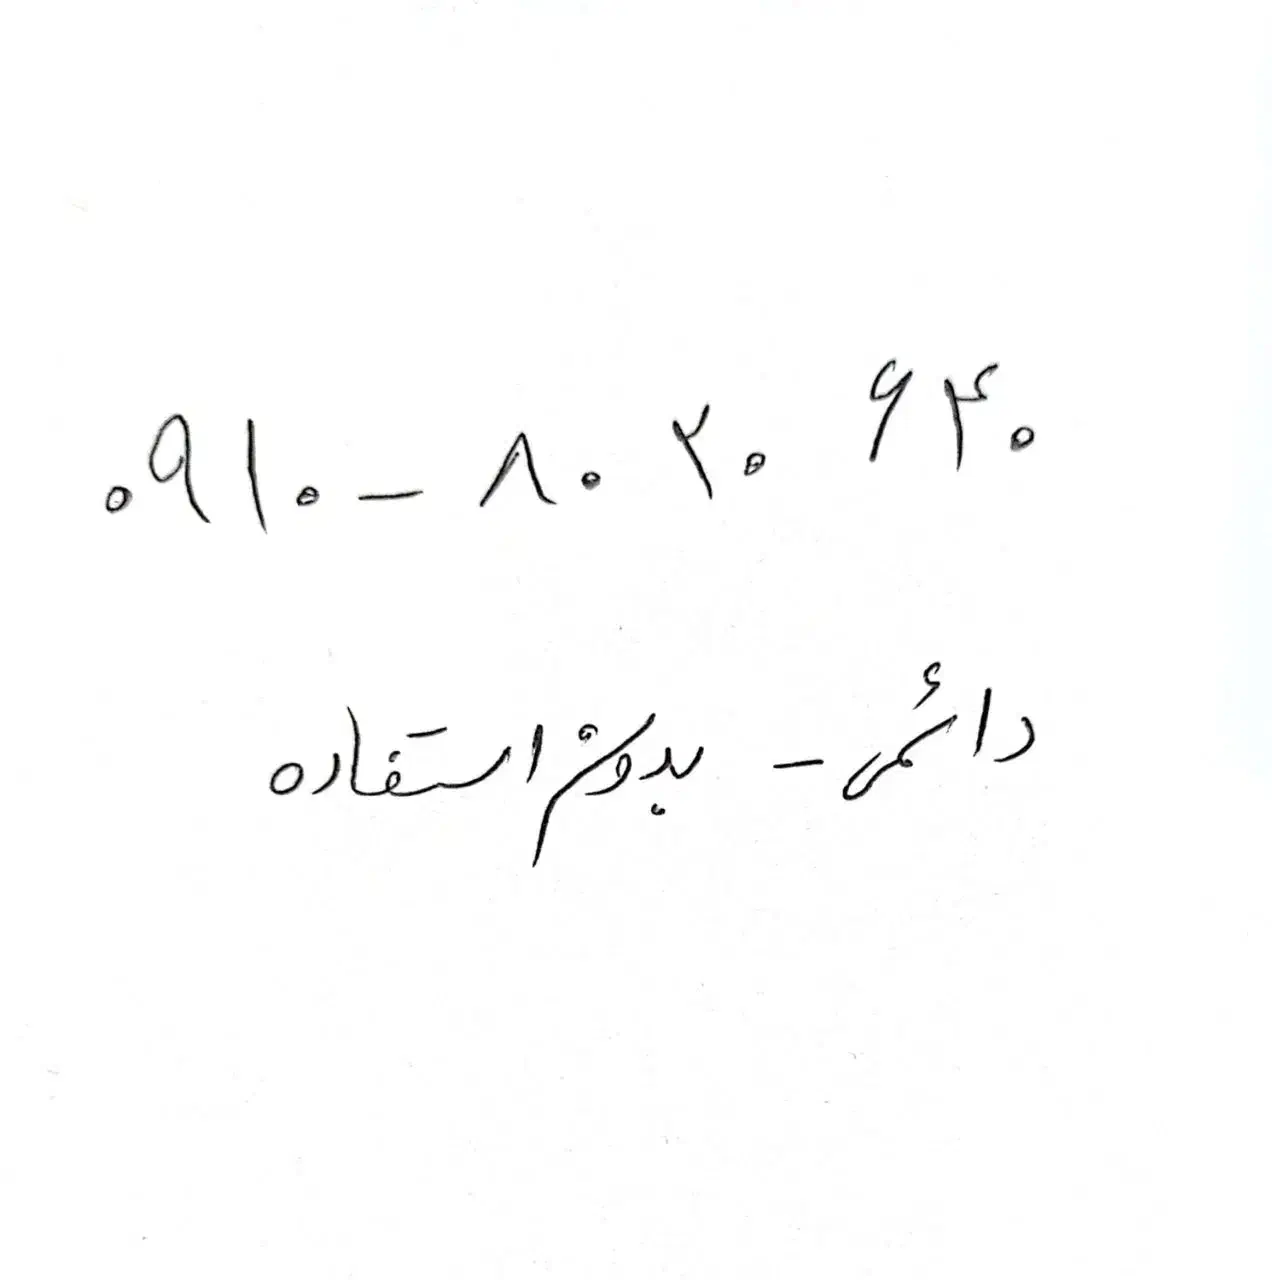 ۰۹۱۰ - ۸۰ ۲۰ ۶۴۰
دائمی - بدون استفاده